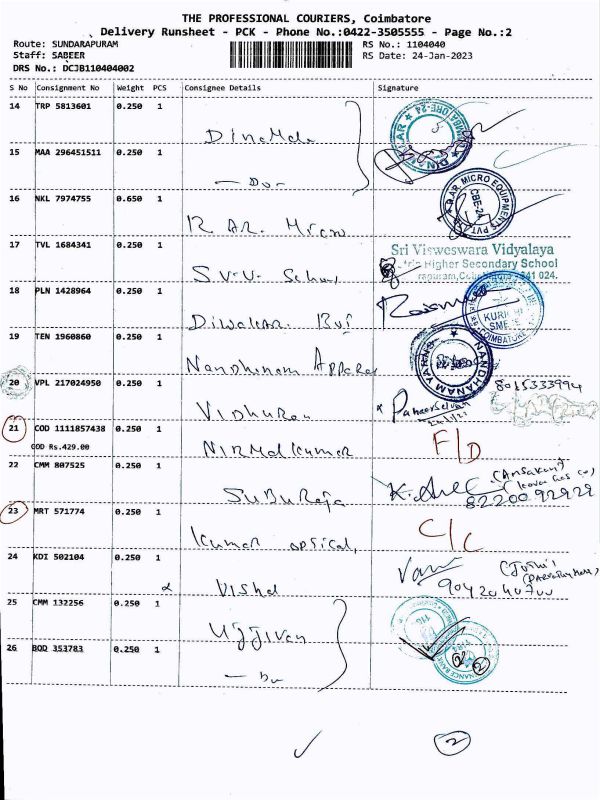 THE PROFESSIONAL COURIERS, Coimbatore
Delivery Runsheet - PCK - Phone No.:0422-3505555 - Page No.:2
Route: SUNDARAPURAM RS No.: 1104040
Staff: SABEER RS Date: 24-Jan-2023
DRS No.: DCJB110404002
S No Consignment No Weight PCS Consignee Details Signature
14 TRP 5813601 0.250 1
15 MAA 296451511 0.250 1
16 NKL 7974755 0.650 1
R. AR. Micro
R.AR. MICRO EQUIPMENTS PVT
CBE-24
17 TVL 1684341 0.250 1
S.V.V. School
Sri Visweswara Vidyalaya
Higher Secondary School
641 024.
18 PLN 1428964 0.250 1
Diwakar
KURICHI
COIMBATORE
19 TEN 1960860 0.250 1
Nandhanam Apparel
NANDHANAM YARNS
20 VPL 217024950 0.250 1
Vidhuran
Paneerselvam
8015333994
21 COD 1111857438 0.250 1
COD Rs.429.00
Nirmal kumar
F/D
22 CMM 807525 0.250 1
Suburaja
82200 92929
23 MRT 571774 0.250 1
Kumar optical,
C/C
24 KDI 502104 0.250 1
Vishal
9042040700
25 CMM 132256 0.250 1
Ujjivan
26 BOD 353783 0.250 1
2